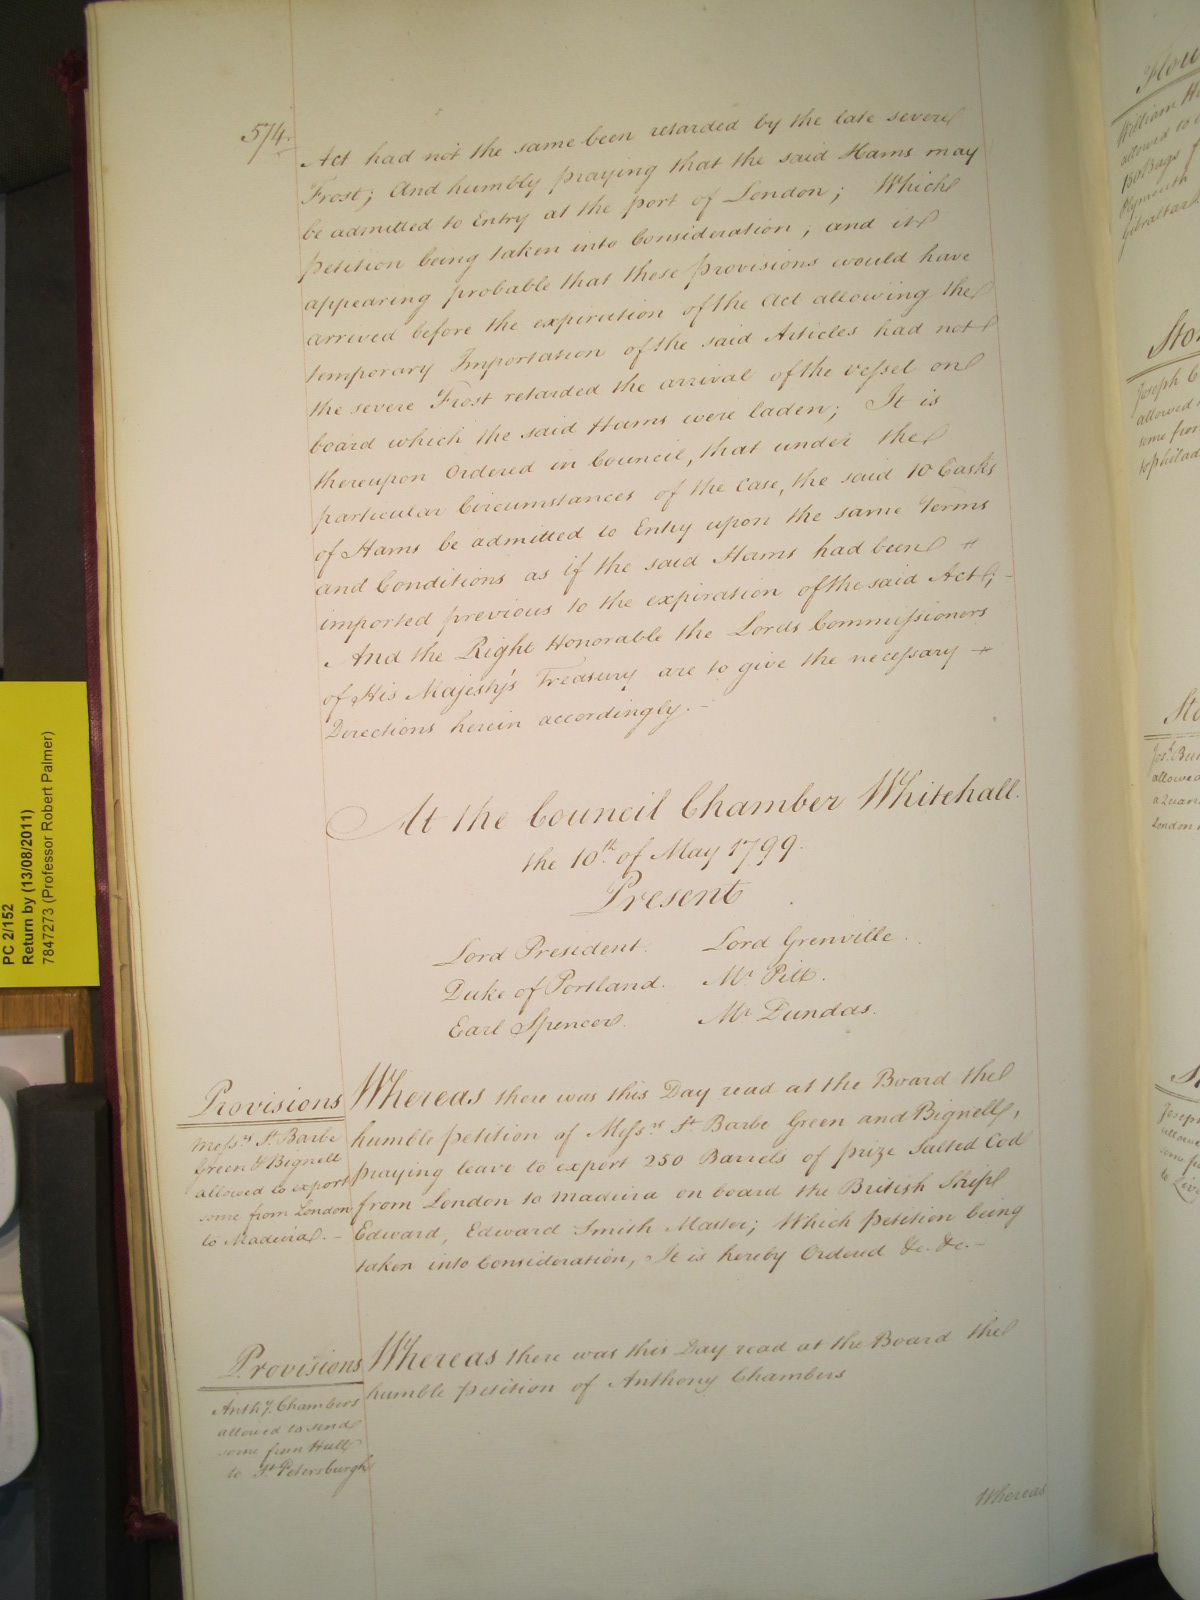 574.
Act had not the same been retarded by the late severe
Frost; And humbly praying that the said Hams may
be admitted to Entry at the port of London; Which
petition being taken into Consideration, and it
appearing probable that those provisions would have
arrived before the expiration of the Act allowing the
temporary Importation of the said Articles had not
the severe Frost retarded the arrival of the vessel on
board which the said Hams were laden; It is
thereupon Ordered in Council, that under the
particular Circumstances of the Case, the said 10 Casks
of Hams be admitted to Entry upon the same Terms
and Conditions as if the said Hams had been
imported previous to the expiration of the said Act; -
And the Right Honorable the Lords Commissioners
of His Majesty's Treasury are to give the necessary
Directions herein accordingly. -
At the Council Chamber Whitehall.
the 10th. of May 1799.
Present
Lord President. Lord Grenville.
Duke of Portland. Mr. Pitt.
Earl Spencer. Mr Dundas.
Provisions
Messrs. St. Barbe
Green & Bignell
allowed to export
some from London
to Madeira. -
Whereas there was this Day read at the Board the
humble petition of Messrs. St. Barbe Green and Bignell,
praying leave to export 250 Barrels of prize Salted Cod
from London to Madeira on board the British Ship
Edward, Edward Smith Master; Which petition being
taken into Consideration, It is hereby Ordered &c. &c. -
Provisions
Anthy. Chambers
allowed to send
some from Hull
to St. Petersburgh
Whereas there was this Day read at the Board the
humble petition of Anthony Chambers
Whereas
PC 2/152
Return by (13/08/2011)
7847273 (Professor Robert Palmer)
William
allowed to
130 Bags
Plymouth
Gibraltar
Joseph
allowed
some from
to Philad
Jos. Bu
allowed
a Quan
London
Joseph